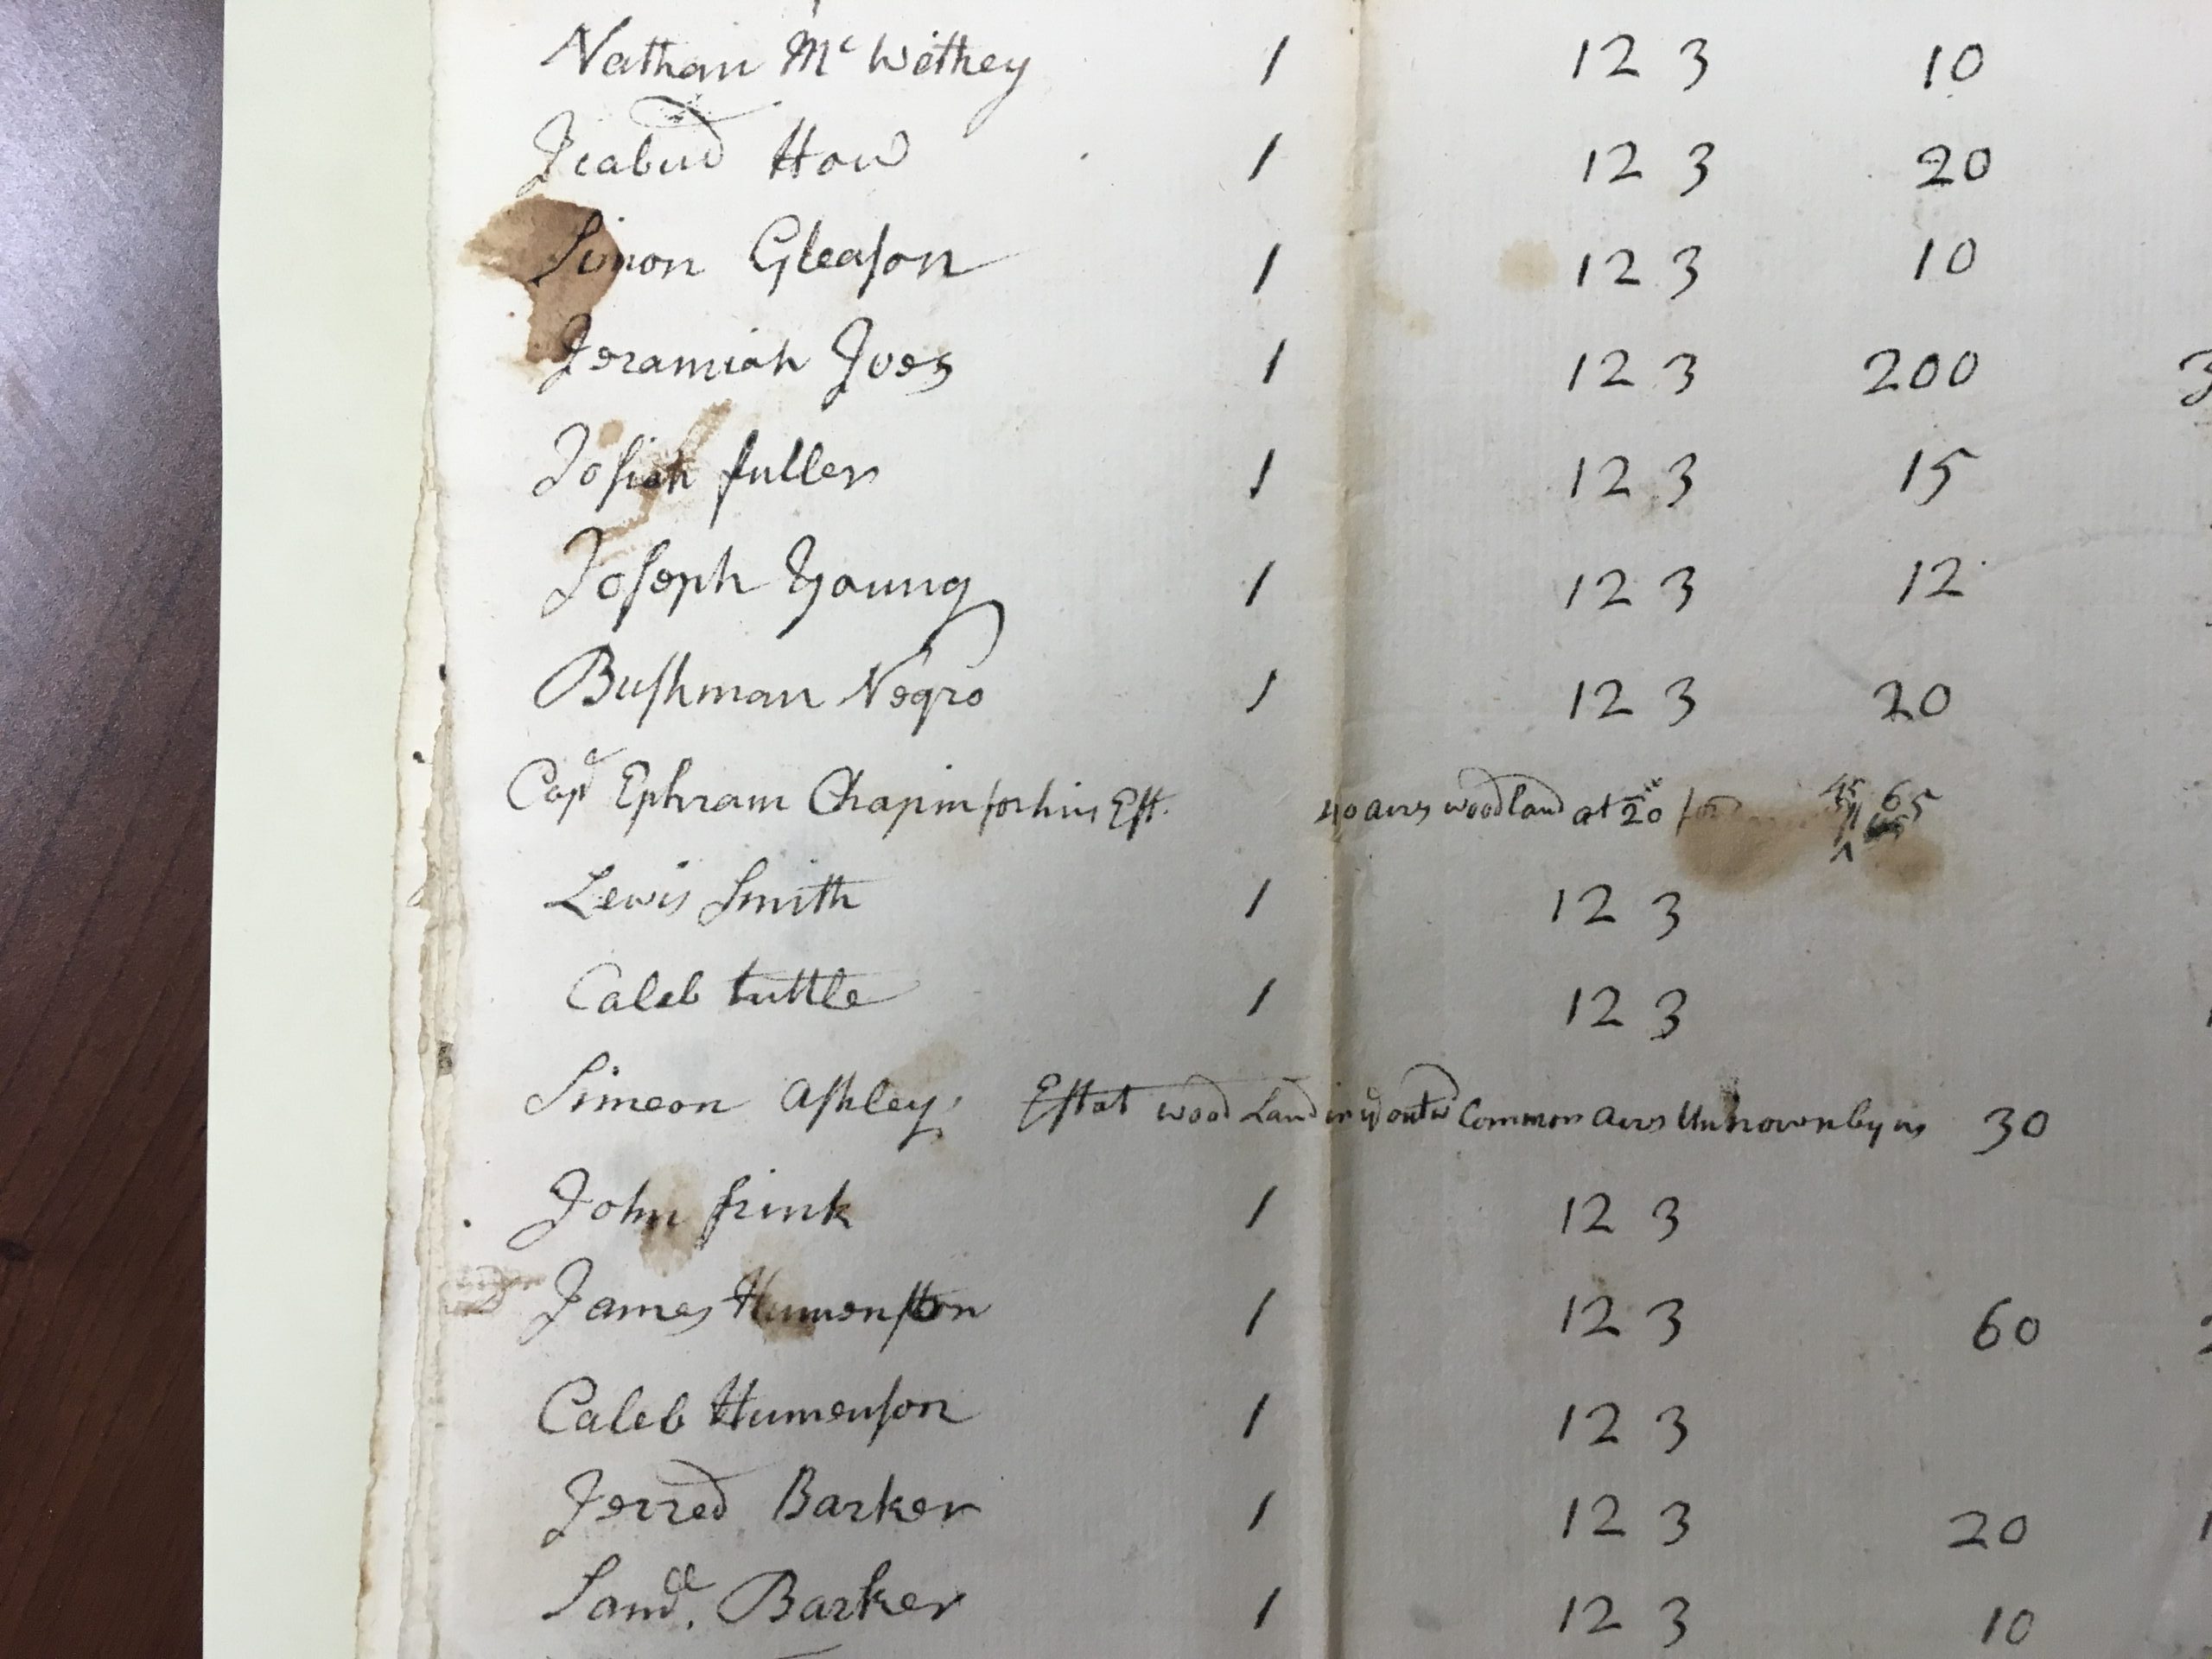 Nathan Mc Wethey 1 12 3 10
Icabud How 1 12 3 20
Simon Gleason 1 12 3 10
Jeramiah Ives 1 12 3 200 3
Josiah fuller 1 12 3 15
Joseph Young 1 12 3 12
Bushman Negro 1 12 3 20
Capt Ephram Chapin for his Est. 40 acrs woodland at 20 for 65
Lewis Smith 1 12 3
Caleb tuttle 1 12 3
Simeon Ashley Estat wood Land in Common acrs Unknown by us 30
John frink 1 12 3
James Humenston 1 12 3 60
Caleb Humenson 1 12 3
Jerred Barker 1 12 3 20
Saml. Barker 1 12 3 10